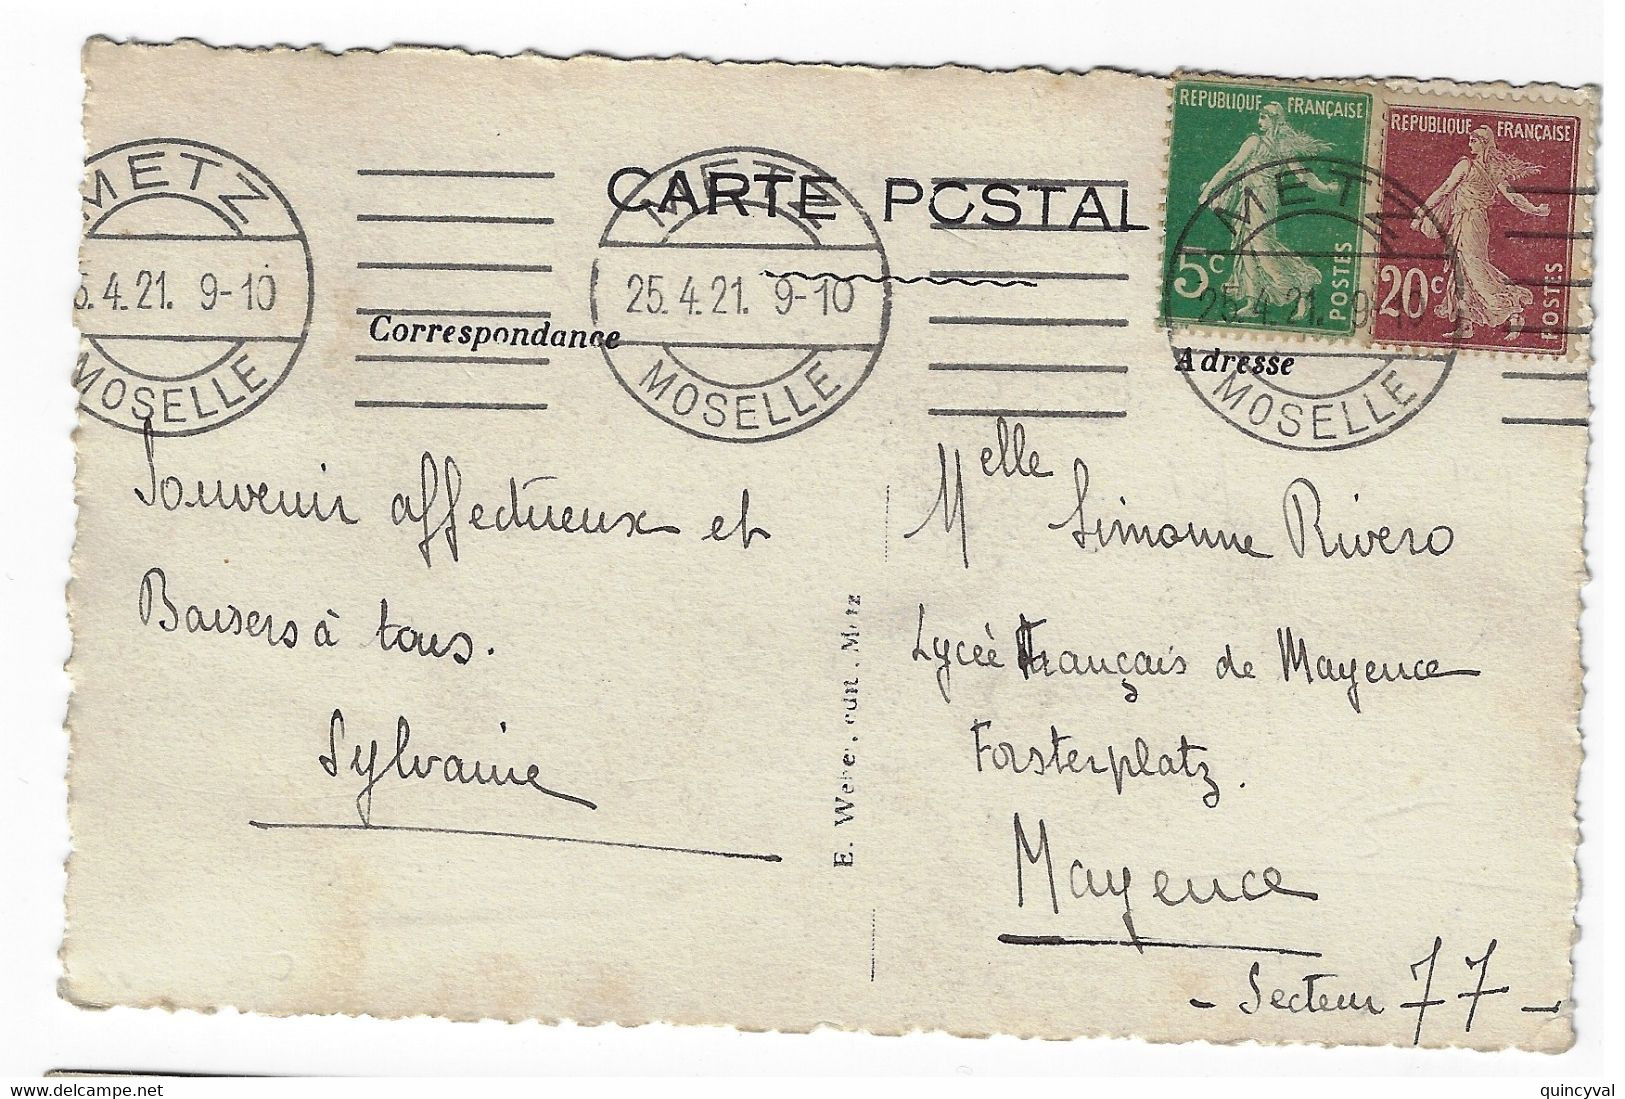 METZ
5.4.21. 9-10
MOSELLE
METZ
25.4.21. 9-10
MOSELLE
METZ
25.4.21. 9-10
MOSELLE
CARTE POSTAL
REPUBLIQUE FRANÇAISE
5c
POSTES
REPUBLIQUE FRANÇAISE
20c
POSTES
Correspondance
Adresse
Souvenir affectueux et
Baisers à tous.
Sylvaine
E. Weber, édit. Metz
Melle Simonne Rivero
Lycée Français de Mayence
Forsterplatz.
Mayence
- Secteur 77 -
quincyval